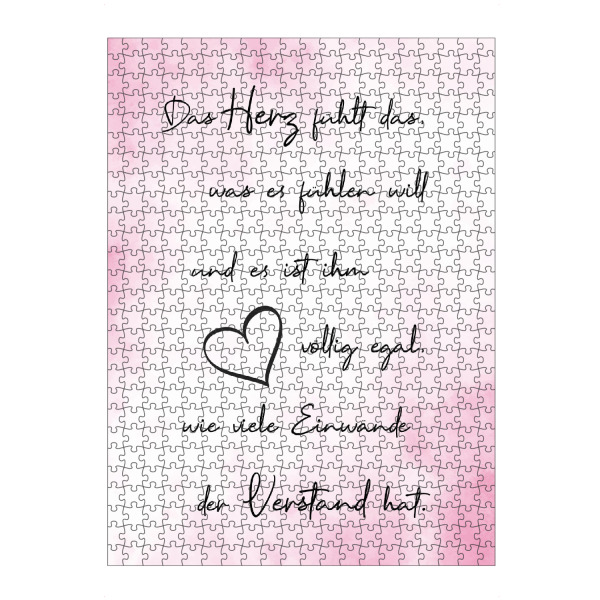 Das Herz fühlt das,
was es fühlen will
und es ist ihm
völlig egal,
wie viele Einwände
der Verstand hat.